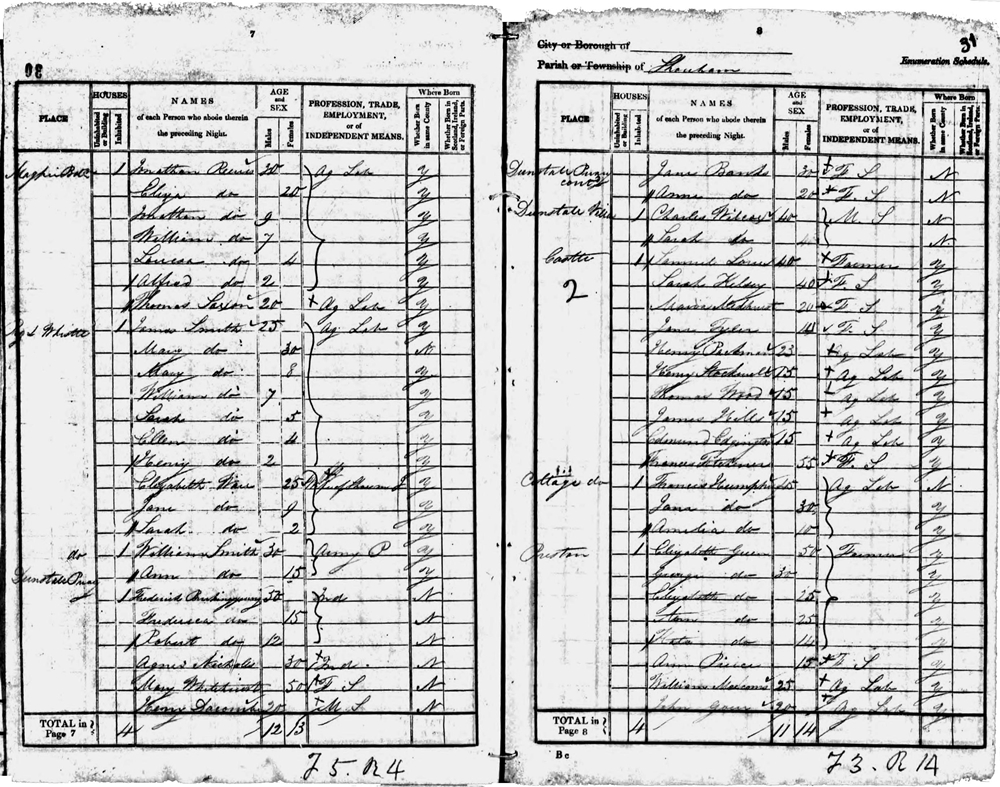 7
30
PLACE
HOUSES
Uninhabited or Building
Inhabited
NAMES
of each Person who abode therein the preceding Night.
AGE and SEX
Males
Females
PROFESSION, TRADE, EMPLOYMENT, or of INDEPENDENT MEANS.
Where Born
Whether Born in same County
Whether Born in Scotland, Ireland, or Foreign Parts.
1 Jonathan Reeves 30 Ag Lab y
Eliza do 20 y
Jonathan do 9 y
William do 7 y
Louisa do 4 y
Alfred do 2 y
Thomas Saxon 20 + Ag Lab y
Whistle 1 James Smith 25 Ag Lab y
Mary do 30 N
Mary do 8 y
William do 7 y
Sarah do 5 y
Ellen do 4 y
Henry do 2 y
Elizabeth Ware 25 y
Jane do 9 y
Sarah do 2 y
do 1 William Smith 30 Army P y
Ann do 15 y
Dunstale Priory
1 Frederick 30 Ind N
Frederica do 15 N
Robert do 12 N
Agnes Nicholls 30 + Ind. N
Mary 50 + F S N
Henry 20 + M S N
TOTAL in Page 7 4 12 13
F 5. R 4
8
31
City or Borough of
Parish or Township of Shoreham
Enumeration Schedule.
PLACE
HOUSES
Uninhabited or Building
Inhabited
NAMES
of each Person who abode therein the preceding Night.
AGE and SEX
Males
Females
PROFESSION, TRADE, EMPLOYMENT, or of INDEPENDENT MEANS.
Where Born
Whether Born in same County
Whether Born in Scotland, Ireland, or Foreign Parts.
Dunstale Priory Jane Banks 30 + F S N
contd Anne do 20 + F. S N
Dunstale Villa 1 Charles Wilcox 40 M. S N
Sarah do N
Castle 1 Samuel Love 40 + Farmer y
2 Sarah Kelsey 40 + F S y
20 + F. S y
Jane Tyler 14 F. S y
Henry 23 + Ag Lab y
Henry Stockwell 15 + Ag Lab y
Thomas Wood 15 Ag Lab y
James Hills 15 + Ag Lab y
Edmund 15 + Ag Lab y
Frances 55 + F. S y
Cottage do 1 Francis Humphry Ag Lab N
Jane do 30 y
Amelia do 10 y
Preston 1 Elizabeth 50 Farmer y
George do 30 y
Elizabeth do 25 y
do 25 y
do 14 y
Ann Pierce 15 + F. S y
William 25 + Ag Lab y
John 20 + Ag Lab y
TOTAL in Page 8 4 11 14
B c
F 3. R 14